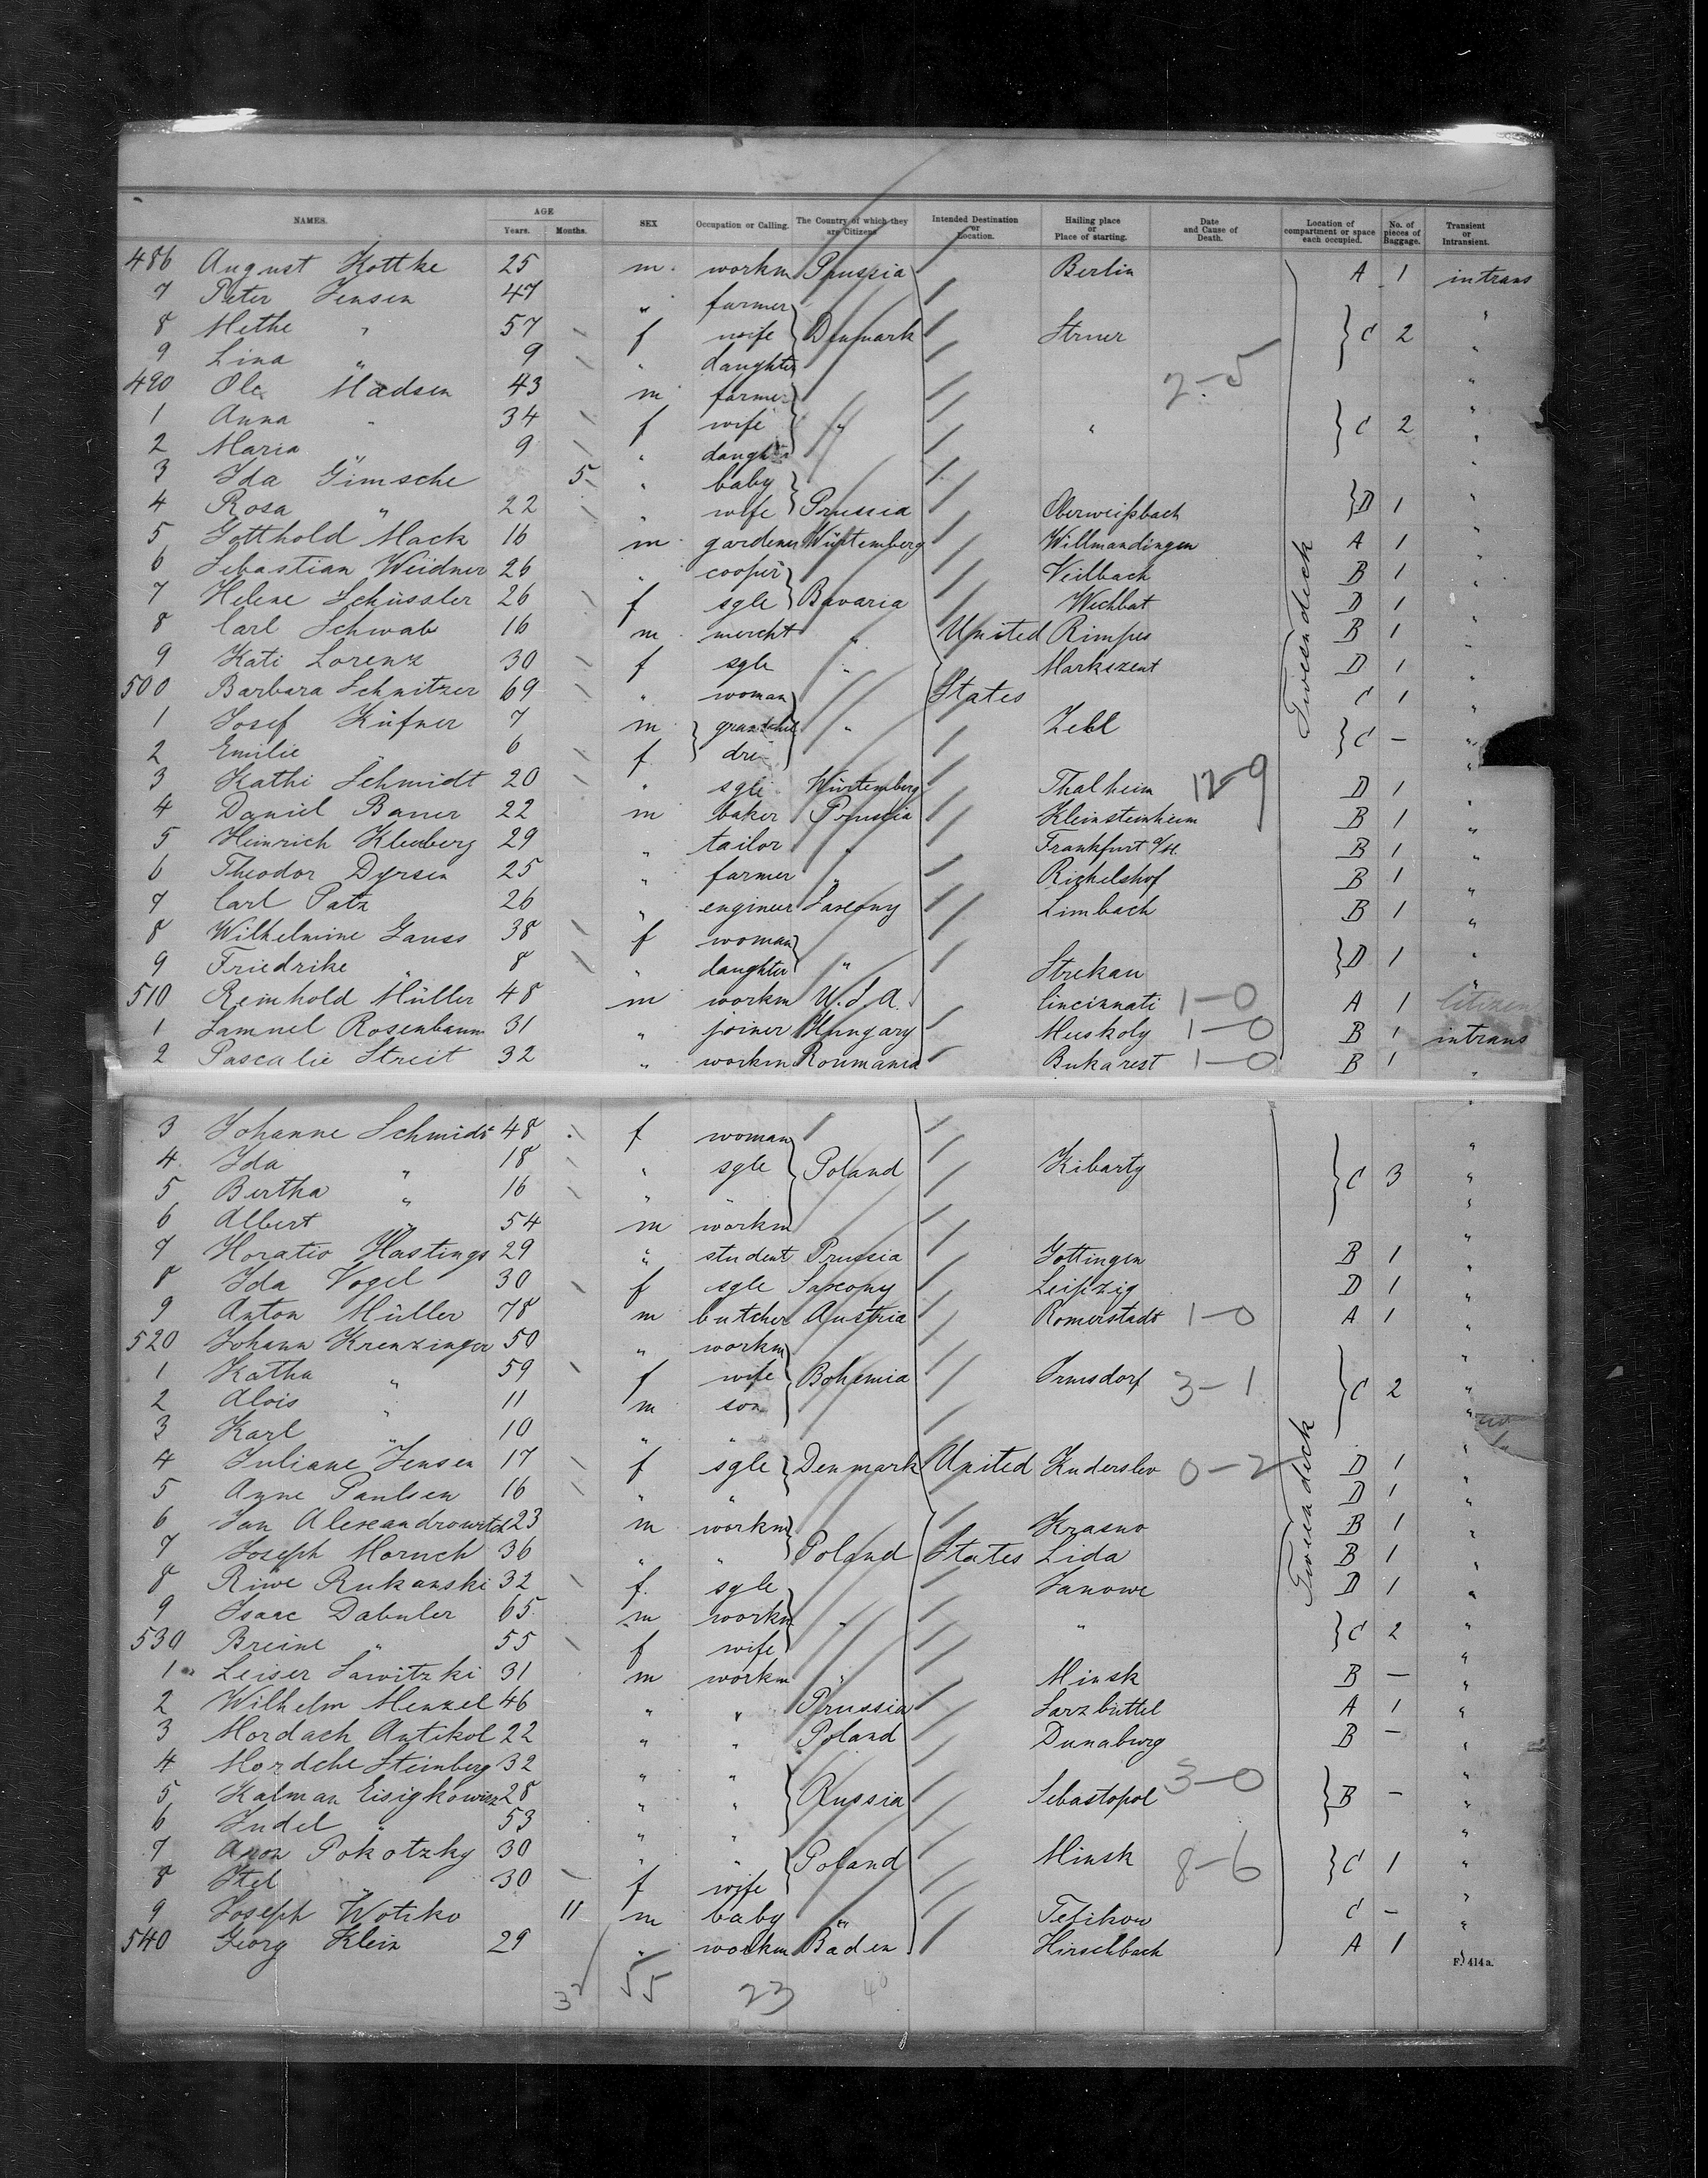 NAMES. AGE Years. Months. SEX Occupation or Calling. The Country of which they are Citizens Intended Destination or Location. Hailing place or Place of starting. Date and Cause of Death. Location of compartment or space each occupied. No. of pieces of Baggage. Transient or Intransient.
486 August Kottke 25 m. workm Prussia Berlin A 1 intrans
7 Peter Jensen 47 " farmer "
8 Methe " 57 f wife Denmark Struer C 2 "
9 Lina " 9 " daughter "
490 Ole Madsen 43 m farmer 2-5 "
1 Anna " 34 f wife " " C 2 "
2 Maria " 9 " daught "
3 Ida Gimsche 5 " baby "
4 Rosa " 22 " wife Prussia Oberweißbach D 1 "
5 Gotthold Mack 16 m gardener Würtemberg Willmandingen A 1 "
6 Sebastian Weidner 26 " cooper Veilbach B 1 "
7 Helene Schüssler 26 f sgle Bavaria Wechbat D 1 "
8 Carl Schwab 16 m mercht " United Rimpes B 1 "
9 Kati Lorenz 30 f sgle " Markszent D 1 "
500 Barbara Schnitzer 69 " woman States C 1 "
1 Josef Küfner 7 m grandchil " Zebl C - "
2 Emilie " 6 f dre "
3 Kathi Schmidt 20 " sgle Würtemberg Thalheim 12-9 D 1 "
4 Daniel Bauer 22 m baker Prussia Kleinsteinheim B 1 "
5 Heinrich Kleeberg 29 " tailor " Frankfurt a/M. B 1 "
6 Theodor Dyrsen 25 " farmer " Rickelshof B 1 "
7 Carl Patz 26 " engineer Saxony Limbach B 1 "
8 Wilhelmine Gauss 38 f woman "
9 Friedrike " 8 " daughter " Strekau D 1 "
510 Reinhold Müller 48 m workm U.S.A. Cincinnati 1-0 A 1 Citizen
1 Samuel Rosenbaum 31 " joiner Hungary Muskoly 1-0 B 1 intrans
2 Pascalie Streit 32 " workm Roumania Bukarest 1-0 B 1 "
3 Johanne Schmidt 48 f woman "
4 Ida " 18 " sgle Poland Kibarty C 3 "
5 Bertha " 16 " " "
6 Albert " 54 m workm "
7 Horatio Hastings 29 " student Prussia Gottingen B 1 "
8 Ida Vogel 30 f sgle Saxony Leipzig D 1 "
9 Anton Müller 78 m butcher Austria Romerstadt 1-0 A 1 "
520 Johann Krenzinger 50 " workm "
1 Katha " 59 f wife Bohemia Irmsdorf 3-1 C 2 "
2 Alois " 11 m son "
3 Karl " 10 " " "
4 Juliane Jensen 17 f sgle Denmark United Knderslev 0-2 D 1 "
5 Anne Paulsen 16 " " D 1 "
6 Jan Alexandrowitch 23 m workm Krasno B 1 "
7 Joseph Moruch 36 " " Poland States Lida B 1 "
8 Riwe Rukanski 32 f. sgle Janowe D 1 "
9 Isaac Dabuler 65 m workm " " C 2 "
530 Breine " 55 f wife "
1 Leiser Sawitzki 31 m workm " Minsk B - "
2 Wilhelm Menzel 46 " " Prussia Sarzbüttel A 1 "
3 Mordach Antikol 22 " " Poland Dunaburg B - "
4 Mordche Steinberg 32 " " "
5 Kalman Eisigkowicz 28 " " Russia Sebastopol 3-0 B - "
6 Judel " 53 " " "
7 Aron Pokotzky 30 " " Poland Minsk 8-6 C 1 "
8 Itel " 30 f wife "
9 Joseph Wotiko 11 m baby " Tetikow C - "
540 Georg Klein 29 " workm Baden Hirschbach A 1
Tweendeck
Tweendeck
F. 414a.
32 55 23 40